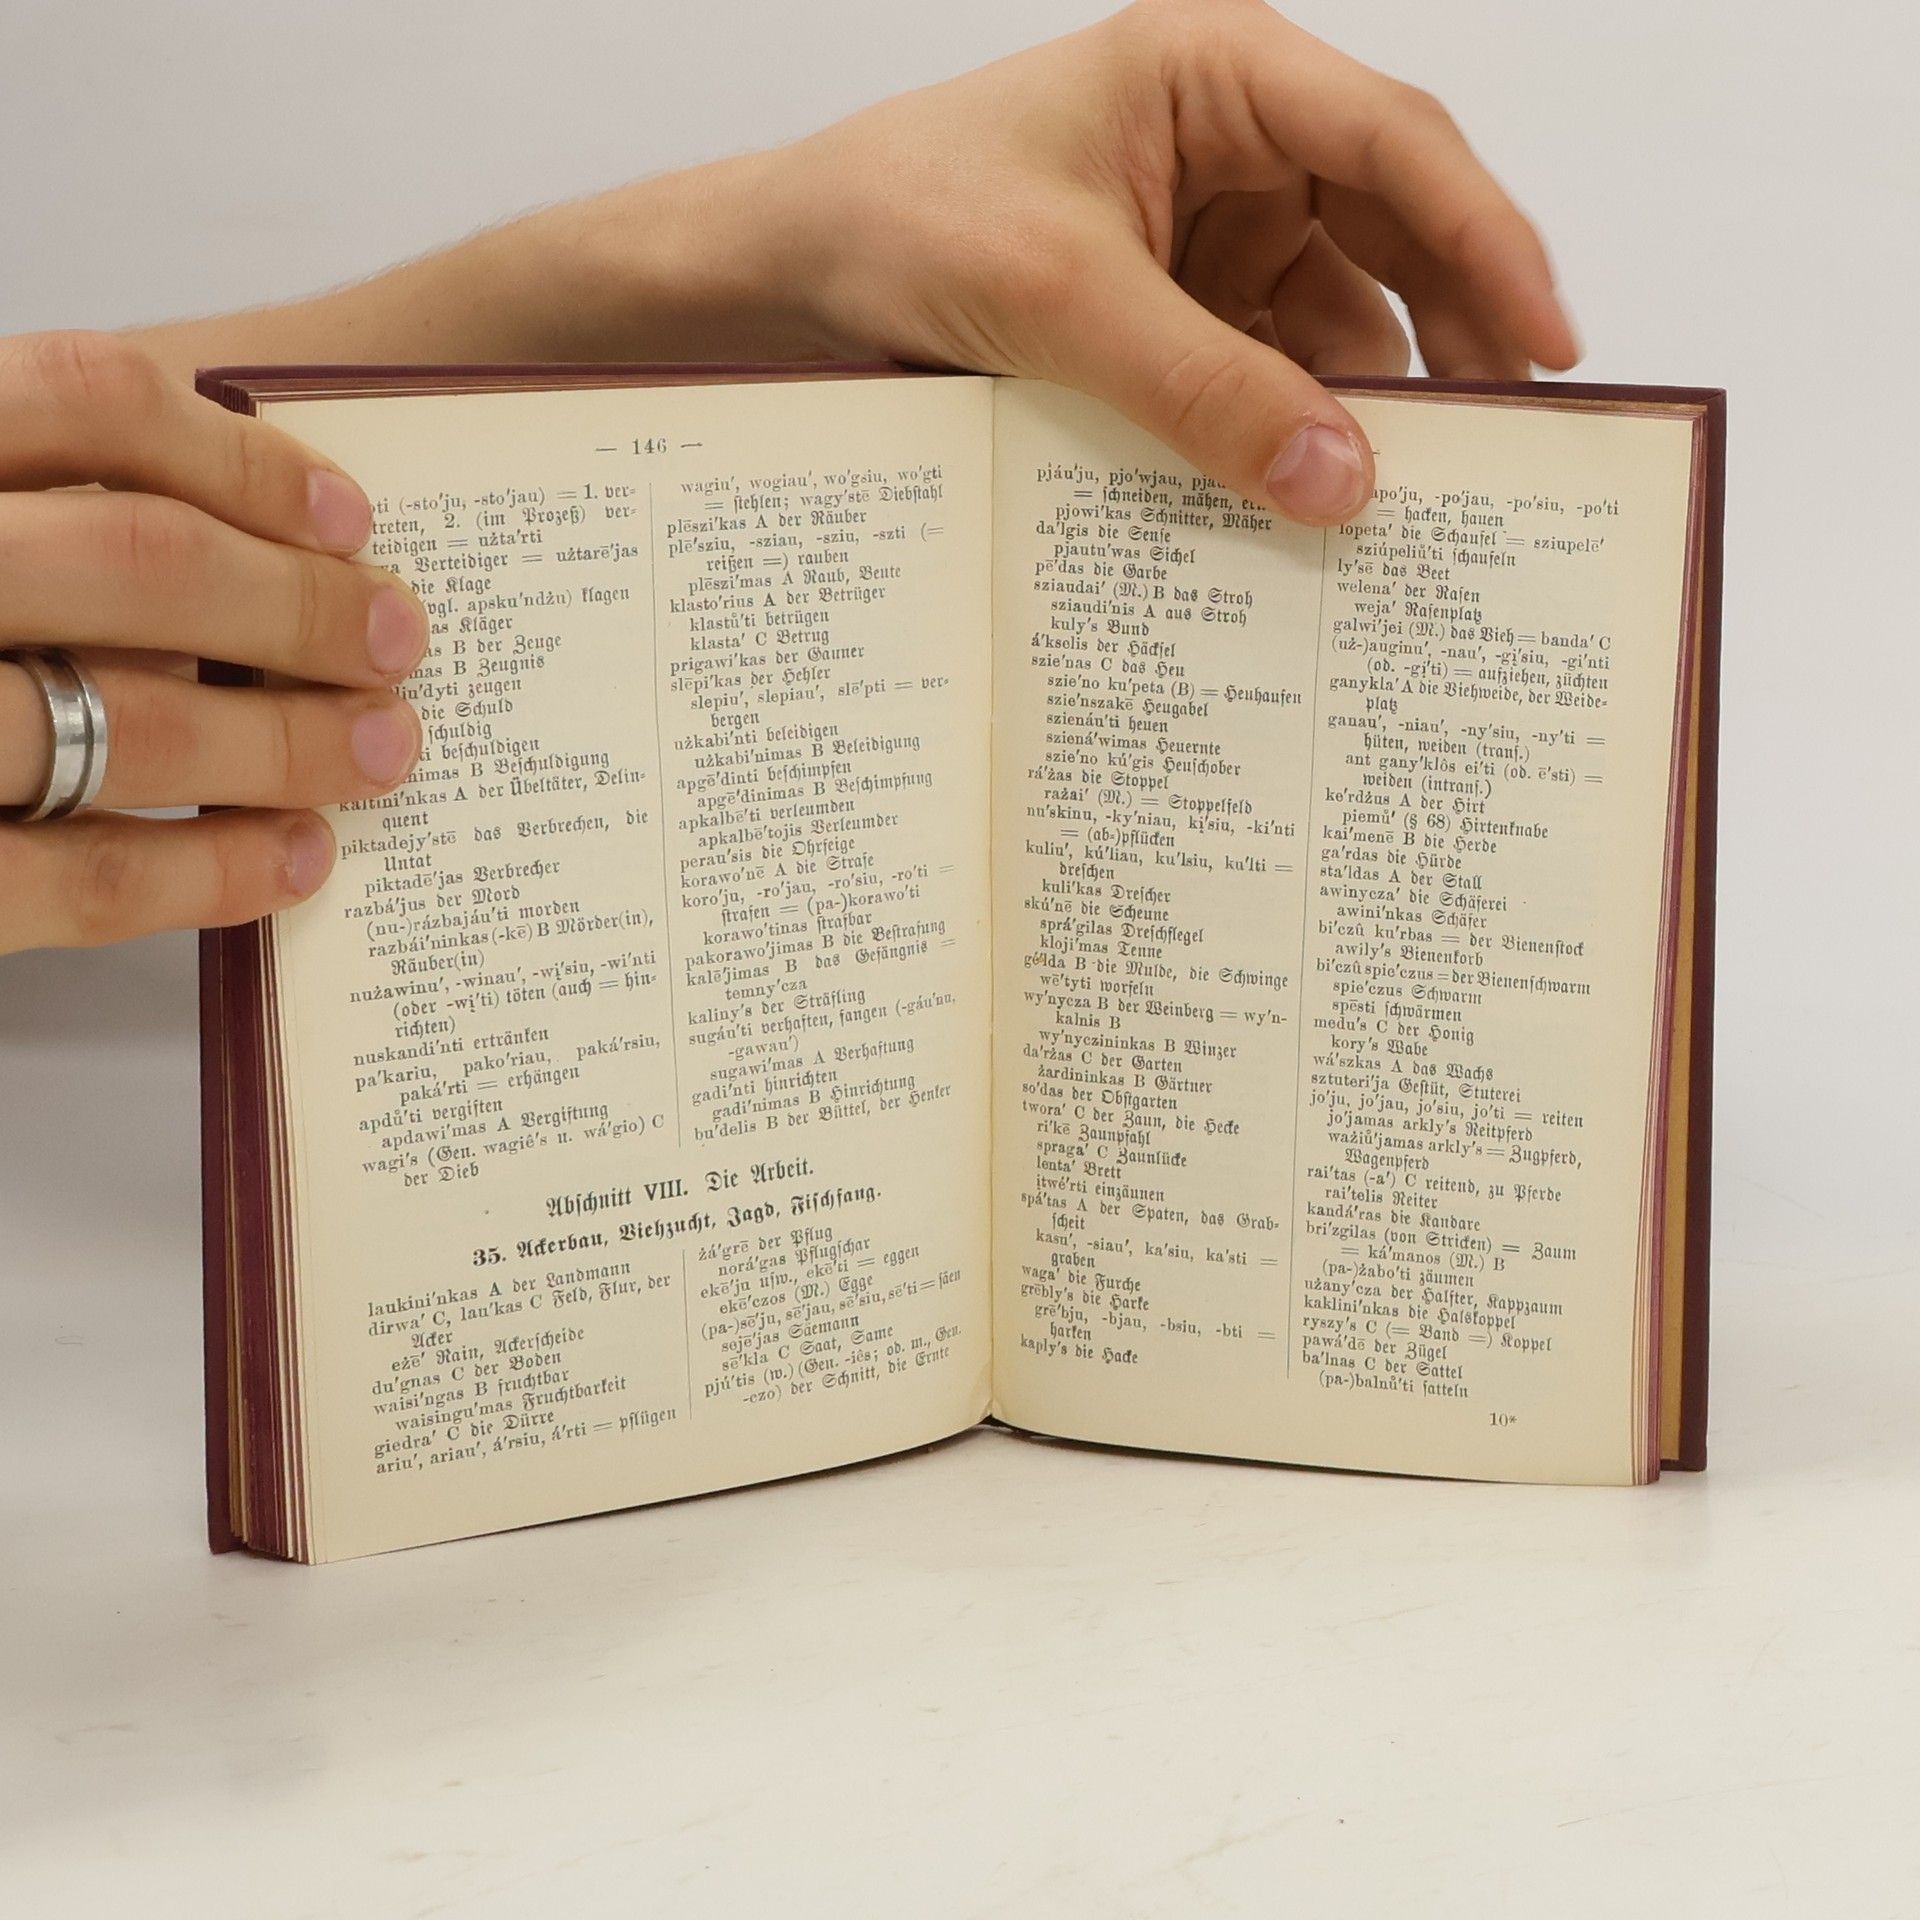 — 146 —
(-sto'ju, -sto'jau) = 1. ver=
treten, 2. (im Prozeß) ver=
teidigen = użta'rti
Verteidiger = użtarē'jas
die Klage
(vgl. apsku'ndżu) klagen
Kläger
B der Zeuge
B Zeugnis
zeugen
die Schuld
schuldig
beschuldigen
B Beschuldigung
kaltini'nkas A der Übeltäter, Delin=
quent
piktadejy'stē das Verbrechen, die
Untat
piktadē'jas Verbrecher
razbá'jus der Mord
(nu-)rázbajáu'ti morden
razbái'ninkas (-kē) B Mörder(in),
Räuber(in)
nużawinu', -winau', -wi̢'siu, -wi'nti
(oder -wi̢'ti) töten (auch = hin=
richten)
nuskandi'nti ertränken
pa'kariu, pako'riau, paká'rsiu,
paká'rti = erhängen
apdů'ti vergiften
apdawi'mas A Vergiftung
wagi's (Gen. wagiê's u. wá'gio) C
der Dieb
wagiu', wogiau', wo'gsiu, wo'gti
= stehlen; wagy'stē Diebstahl
plēszi'kas A der Räuber
plē'sziu, -sziau, -sziu, -szti (=
reißen =) rauben
plēszi'mas A Raub, Beute
klasto'rius A der Betrüger
klastů'ti betrügen
klasta' C Betrug
prigawi'kas der Gauner
slēpi'kas der Hehler
slepiu', slepiau', slē'pti = ver=
bergen
użkabi'nti beleidigen
użkabi'nimas B Beleidigung
apgē'dinti beschimpfen
apgē'dinimas B Beschimpfung
apkalbē'ti verleumden
apkalbē'tojis Verleumder
perau'sis die Ohrfeige
korawo'nē A die Strafe
koro'ju, -ro'jau, -ro'siu, -ro'ti =
strafen = (pa-)korawo'ti
korawo'tinas strafbar
pakorawo'jimas B die Bestrafung
kalē'jimas B das Gefängnis =
temny'cza
kaliny's der Sträfling
sugáu'ti verhaften, fangen (-gáu'nu,
-gawau')
sugawi'mas A Verhaftung
gadi'nti hinrichten
gadi'nimas B Hinrichtung
bu'delis B der Büttel, der Henker
Abschnitt VIII. Die Arbeit.
35. Ackerbau, Viehzucht, Jagd, Fischfang.
laukini'nkas A der Landmann
dirwa' C, lau'kas C Feld, Flur, der
Acker
eżē' Rain, Ackerscheide
du'gnas C der Boden
waisi'ngas B fruchtbar
waisingu'mas Fruchtbarkeit
giedra' C die Dürre
ariu', ariau', á'rsiu, á'rti = pflügen
żá'grē der Pflug
norá'gas Pflugschar
ekē'ju usw., ekē'ti = eggen
ekē'czos (M.) Egge
(pa-)sē'ju, sē'jau, sē'siu, sē'ti = säen
sejē'jas Säemann
sē'kla C Saat, Same
pjú'tis (w.) (Gen. -iēs; od. m., Gen.
-czo) der Schnitt, die Ernte
pjáu'ju, pjo'wjau,
= schneiden, mähen,
pjowi'kas Schnitter, Mäher
da'lgis die Sense
pjautu'was Sichel
pē'das die Garbe
sziaudai' (M.) B das Stroh
sziaudi'nis A aus Stroh
kuly's Bund
á'kselis der Häcksel
szie'nas C das Heu
szie'no ku'peta (B) = Heuhaufen
szie'nszakē Heugabel
szienáu'ti heuen
sziená'wimas Heuernte
szie'no kú'gis Heuschober
rá'żas die Stoppel
rażai' (M.) = Stoppelfeld
nu'skinu, -ky'niau, ki̢'siu, -ki'nti
= (ab=)pflücken
kuliu', kú'liau, ku'lsiu, ku'lti =
dreschen
kuli'kas Drescher
skú'nē die Scheune
sprá'gilas Dreschflegel
kloji'mas Tenne
gé'lda B die Mulde, die Schwinge
wē'tyti worfeln
wy'nycza B der Weinberg = wy'n-
kalnis B
wy'nyczininkas B Winzer
da'rżas C der Garten
żardininkas B Gärtner
so'das der Obstgarten
twora' C der Zaun, die Hecke
ri'kē Zaunpfahl
spraga' C Zaunlücke
lenta' Brett
i̢twé'rti einzäunen
spá'tas A der Spaten, das Grab=
scheit
kasu', -siau', ka'siu, ka'sti =
graben
waga' die Furche
grēbly's die Harke
grē'bju, -bjau, -bsiu, -bti =
harken
kaply's die Hacke
-po'jau, -po'siu, -po'ti
= hacken, hauen
lopeta' die Schaufel = sziupelē'
sziúpeliů'ti schaufeln
ly'sē das Beet
welena' der Rasen
weja' Rasenplatz
galwi'jei (M.) das Vieh = banda' C
(uż-)auginu', -nau', -gi̢'siu, -gi'nti
(od. -gi̢'ti) = aufziehen, züchten
ganykla' A die Viehweide, der Weide=
platz
ganau', -niau', -ny'siu, -ny'ti =
hüten, weiden (trans.)
ant gany'klôs ei'ti (od. ē'sti) =
weiden (intrans.)
ke'rdżus A der Hirt
piemů' (§ 68) Hirtenknabe
kai'menē B die Herde
ga'rdas die Hürde
sta'ldas A der Stall
awinycza' die Schäferei
awini'nkas Schäfer
bi'czû ku'rbas = der Bienenstock
awily's Bienenkorb
bi'czû spie'czus = der Bienenschwarm
spie'czus Schwarm
spēsti schwärmen
medu's C der Honig
kory's Wabe
wá'szkas A das Wachs
sztuteri'ja Gestüt, Stuterei
jo'ju, jo'jau, jo'siu, jo'ti = reiten
jo'jamas arkly's Reitpferd
ważiů'jamas arkly's = Zugpferd,
Wagenpferd
rai'tas (-a') C reitend, zu Pferde
rai'telis Reiter
kandá'ras die Kandare
bri'zgilas (von Stricken) = Zaum
= ká'manos (M.) B
(pa-)żabo'ti zäumen
użany'cza der Halfter, Kappzaum
kaklini'nkas die Halskoppel
ryszy's C (= Band =) Koppel
pawá'dē der Zügel
ba'lnas C der Sattel
(pa-)balnů'ti satteln
10*